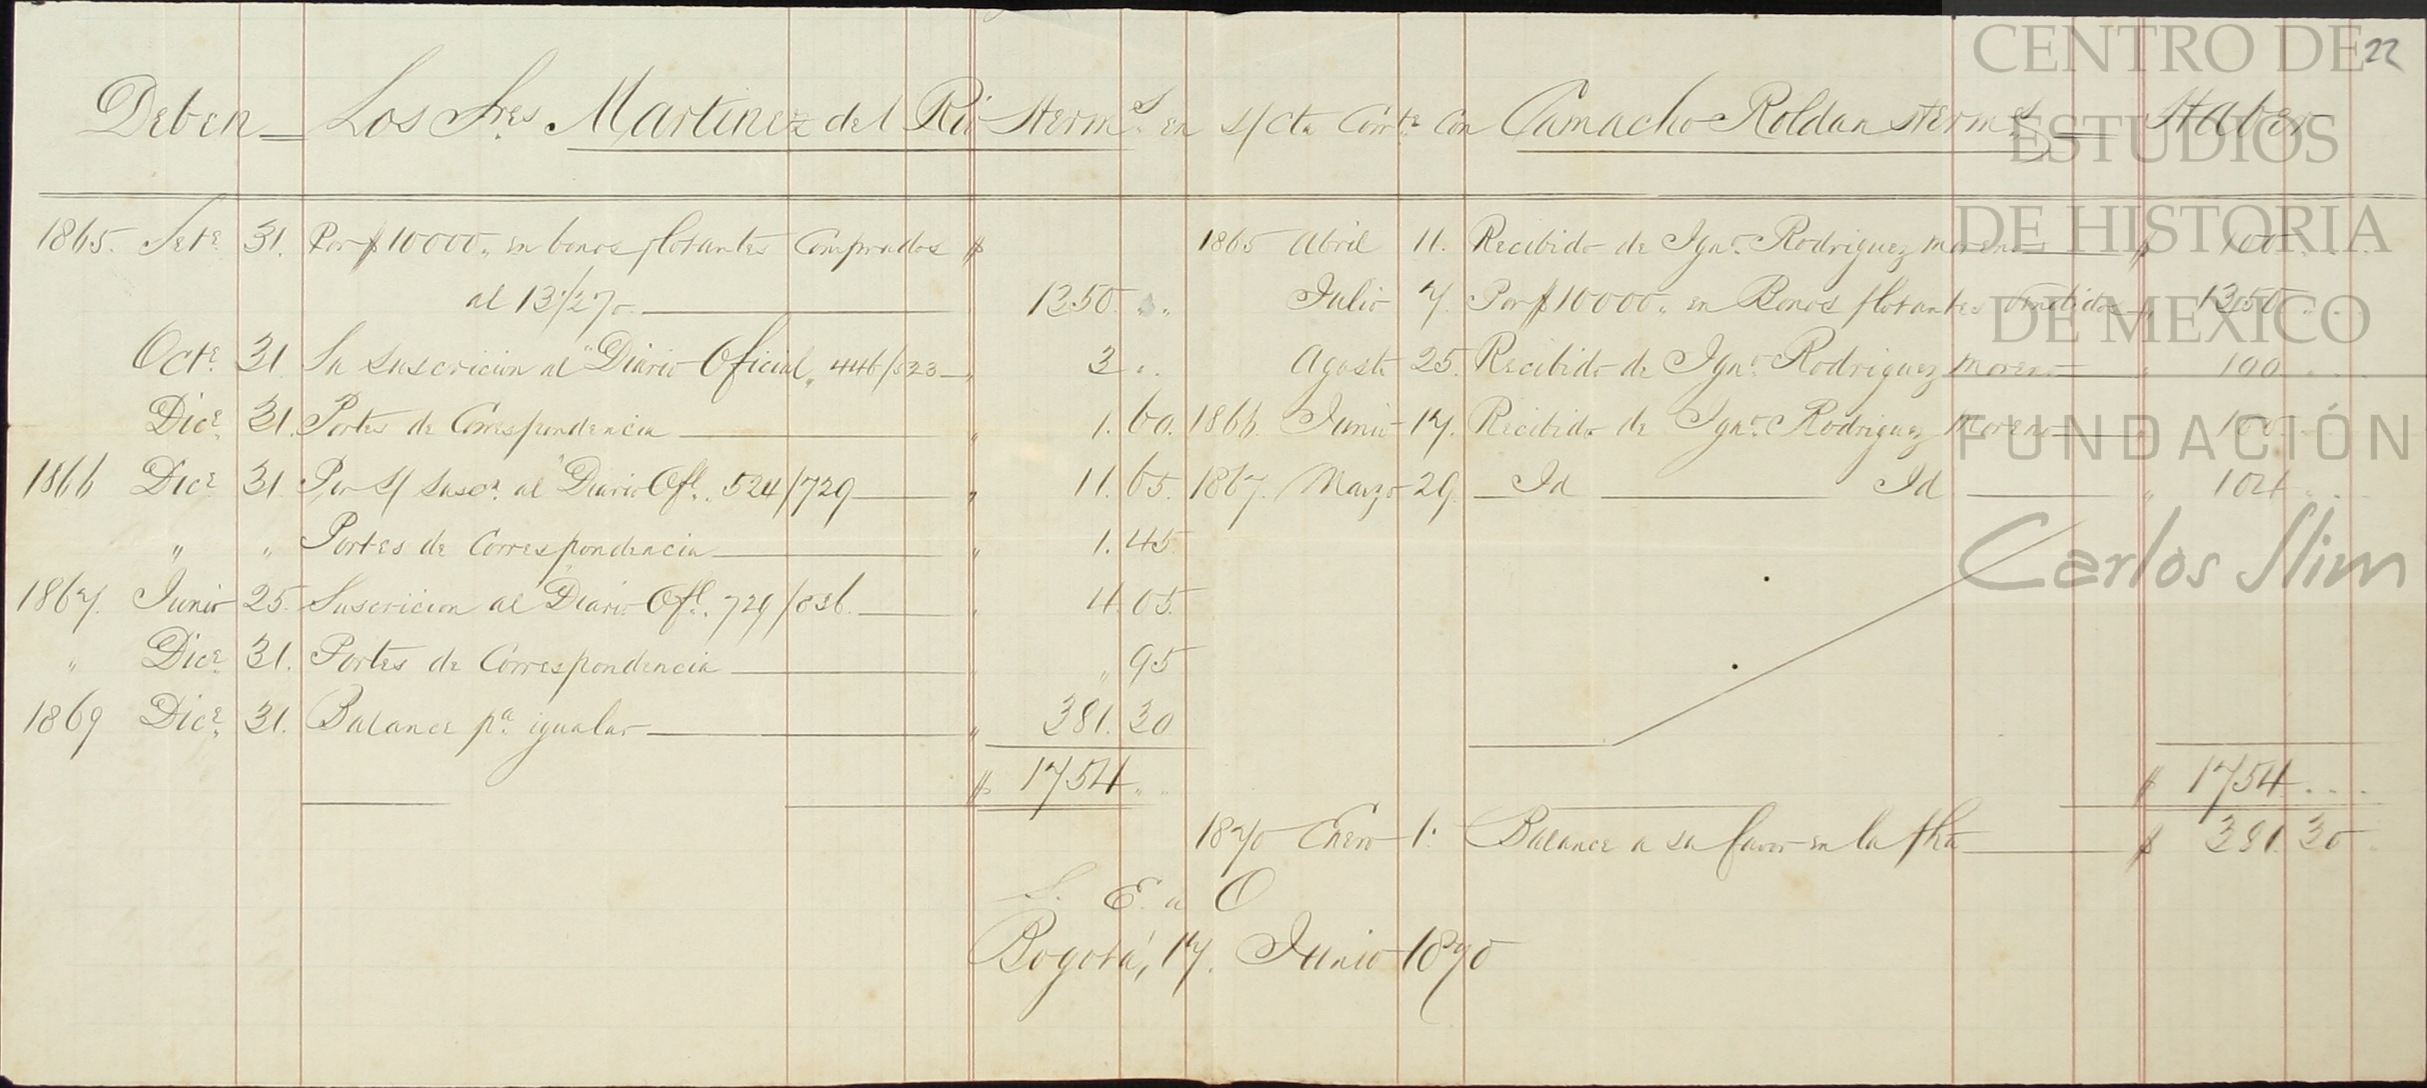 22
Deben — Los Sres. Martinez del Rio Herms. en s/cta. Corrte. con Camacho Roldan Herms. — Haber
1865. Sete. 31. Por $10000 " en bonos flotantes comprados $
al 13 1/2 %. 1350 " "
Octe. 31 Su suscricion al "Diario Oficial" 446/523 " 3 " "
Dice. 31. Portes de Correspondencia " 1. 60.
1866 Dice. 31 Por s/ suscn. al "Diario Ofl." 524/729 " 11. 65.
" " Portes de Correspondencia " 1. 45
1867. Junio 25. Suscricion al "Diario Ofl." 729/836. " 4. 05.
" Dice. 31. Portes de Correspondencia " " 95
1869 Dice. 31. Balance pa. igualar " 381. 30
$ 1754 " "
1865 Abril 11. Recibido de Igno. Rodriguez Moreno $ 100. . .
Julio 7. Por $10000 " en Bonos flotantes vendidos " 1350 . . .
Agosto 25. Recibido de Igno. Rodriguez Moreno " 100 . . .
1866. Junio 17. Recibido de Igno. Rodriguez Moreno " 100. . .
1867. Marzo 29. Id Id " 104 . . .
$ 1754 . . .
1870 Enero 1. Balance a su favor en la fha $ 381. 30
S. E. u O
Bogotá, 17. Junio 1870
CENTRO DE
ESTUDIOS
DE HISTORIA
DE MEXICO
FUNDACIÓN
Carlos Slim